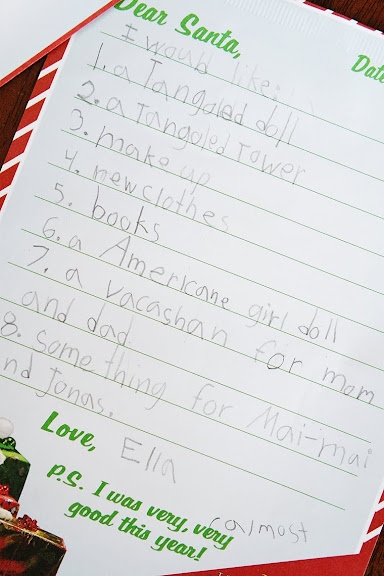 Dear Santa,
Date
I would like:
1. a Tangoled doll
2. a Tangoled Tower
3. make up
4. new clothes
5. books
6. a Americane girl doll
7. a vacashan for mom
and dad.
8. something for Mai-mai
nd Jonas.
Love,
Ella
P.S. I was very, very
(almost
good this year!